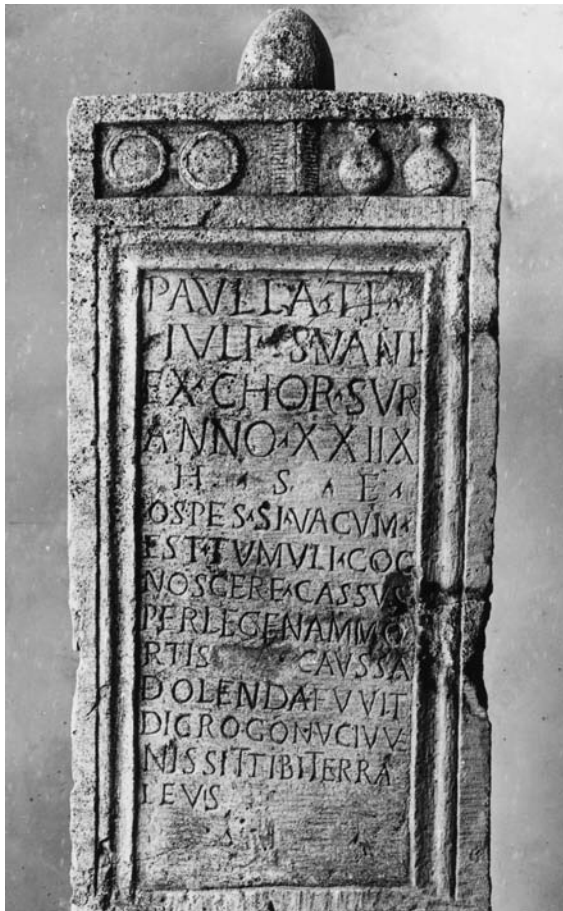 PAVLLA·TI·
IVLI·SVANI
EX·CHOR·SVR
ANNO·XXIIX
H·S·E·
OSPES·SI·VACVM·
EST·TVMVLI·COG
NOSCERE·CASSVS
PERLEGE NAM MO
RTIS CAVSSA
DOLENDA FVVIT
DIGRO CONVCI IVVE
NIS SIT TIBI TERRA
LEVIS